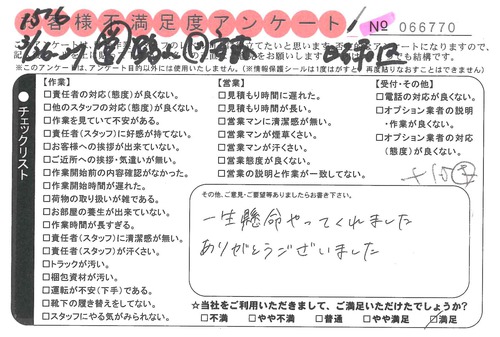 お客様不満足度アンケート
No 066770
1576
※このアンケートは、アンケート目的以外には使用いたしません。（※情報保護シールは1度がはすと再度貼りなおすことはできません）
チェックリスト
【作業】
□責任者の対応(態度)が良くない。
□他のスタッフの対応(態度)が良くない。
□作業を見ていて不安がある。
□責任者(スタッフ)に好感が持てない。
□お客様への挨拶が出来ていない。
□ご近所への挨拶・気遣いが無い。
□作業開始前の内容確認がなかった。
□作業開始時間が遅れた。
□荷物の取り扱いが雑である。
□お部屋の養生が出来ていない。
□作業時間が長すぎる。
□責任者(スタッフ)に清潔感が無い。
□責任者(スタッフ)が汗くさい。
□トラックが汚い。
□梱包資材が汚い。
□運転が不安(下手)である。
□靴下の履き替えをしてない。
□スタッフにやる気がみられない。
【営業】
□見積もり時間に遅れた。
□見積もり時間が長い。
□営業マンに清潔感が無い。
□営業マンが煙草くさい。
□営業マンが汗くさい。
□営業態度が良くない。
□営業の説明と作業が一致してない。
【受付・その他】
□電話の対応が良くない。
□オプション業者の説明・作業が良くない。
□オプション業者の対応(態度)が良くない。
その他、ご意見・ご要望等ありましたらお書き下さい。
一生懸命やってくれました
ありがとうございました
☆当社をご利用いただきまして、ご満足いただけたでしょうか?
□不満 □やや不満 □普通 □やや満足 □満足